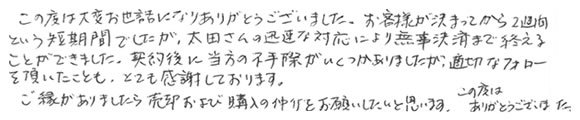 この度は大変お世話になりありがとうございました。お客様が決まってから2週間
という短期間でしたが、太田さんの迅速な対応により無事決済まで終える
ことができました。契約後に当方の不手際がいくつかありましたが、適切なフォロー
を頂いたことも、とても感謝しております。
ご縁がありましたら売却および購入の仲介をお願いしたいと思います。
この度は
ありがとうございました。